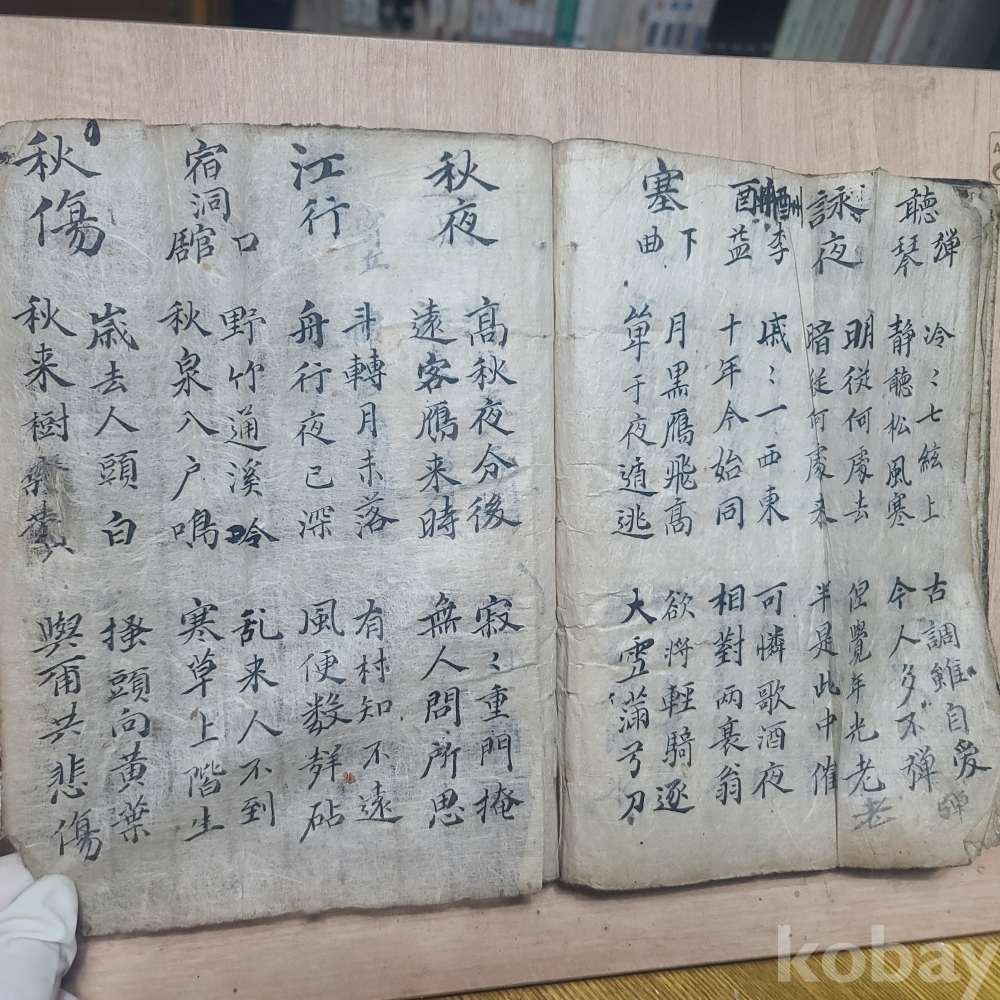 聽彈琴
冷〻七絃上
古調雖自愛
彈
静聽松風寒
今人多不彈
詠夜
明従何處去
但覺年光老
老
暗従何處来
半是此中催
酬李益
戚〻一西東
可憐歌酒夜
十年今始同
相對兩衰翁
塞下曲
月黒鴈飛髙
欲将輕騎逐
单于夜遁逃
大雪滿弓刀
秋夜
髙秋夜分後
寂〻重門掩
遠客鴈来時
無人問所思
江行
斗轉月未落
有村知不遠
舟行夜已深
風便数声砧
宿洞口舘
野竹通溪冷
乱来人不到
秋泉入户鳴
寒草上階生
秋傷
歳去人頭白
搔頭向黄葉
秋来樹葉黄
與爾共悲傷
kobay